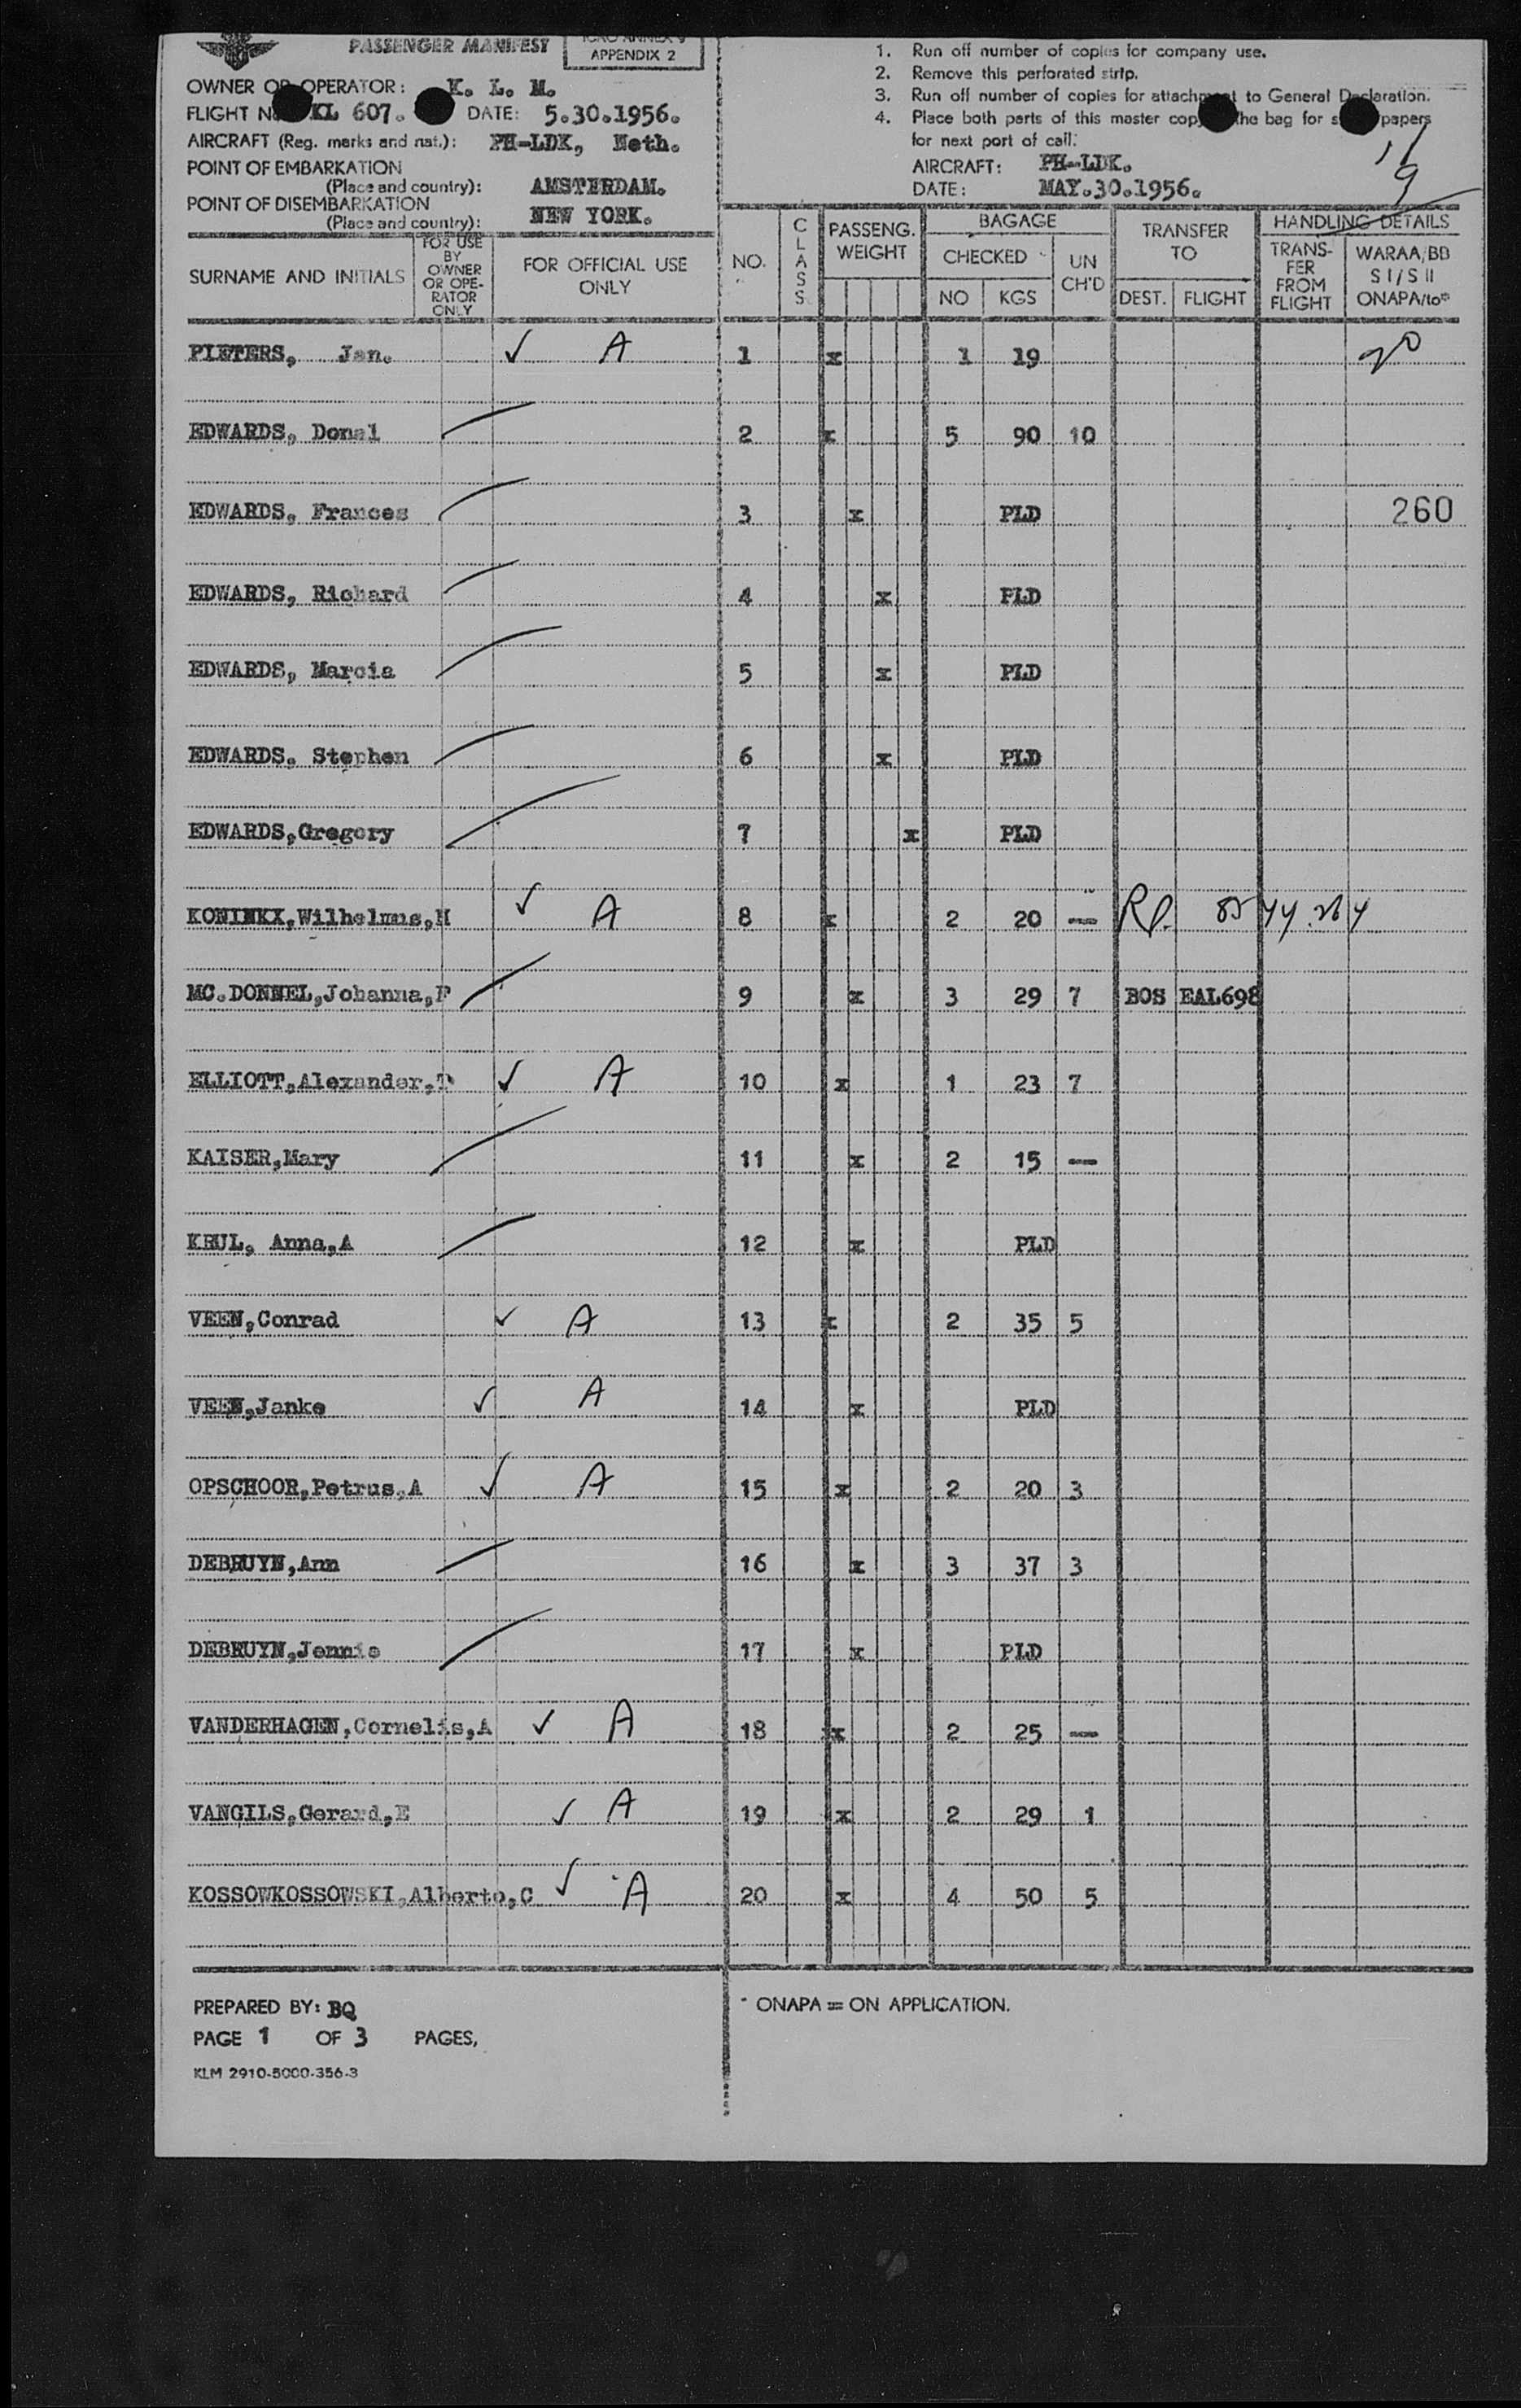 PASSENGER MANIFEST
APPENDIX 2
OWNER OR OPERATOR: K. L. M.
FLIGHT N KL 607. DATE: 5.30.1956.
AIRCRAFT (Reg. marks and nat.): PH-LDK, Neth.
POINT OF EMBARKATION
(Place and country): AMSTERDAM.
POINT OF DISEMBARKATION
(Place and country): NEW YORK.
1. Run off number of copies for company use.
2. Remove this perforated strip.
3. Run off number of copies for attachment to General Declaration.
4. Place both parts of this master copy the bag for s papers
for next port of call:
AIRCRAFT: PH-LDK.
DATE: MAY.30.1956.
9
SURNAME AND INITIALS
FOR USE BY OWNER OR OPE-RATOR ONLY
FOR OFFICIAL USE ONLY
NO.
CLASS
PASSENG. WEIGHT
BAGAGE
CHECKED
NO KGS
UN CH'D
TRANSFER TO
DEST. FLIGHT
HANDLING DETAILS
TRANS-FER FROM FLIGHT
WARAA/BB S I/S II ONAPA/to*
PIETERS, Jan. ✓ A 1 x 1 19 20
EDWARDS, Donal 2 x 5 90 10
EDWARDS, Frances 3 x PLD 260
EDWARDS, Richard 4 x PLD
EDWARDS, Marcia 5 x PLD
EDWARDS. Stephen 6 x PLD
EDWARDS,Gregory 7 x PLD
KONINKX,Wilhelmus,H ✓ A 8 x 2 20 —
MC.DONNEL,Johanna,F 9 x 3 29 7 BOS EAL698
ELLIOTT,Alexander,T ✓ A 10 x 1 23 7
KAISER,Mary 11 x 2 15 —
KRUL, Anna,A 12 x PLD
VEEN,Conrad ✓ A 13 x 2 35 5
VEEN,Janke ✓ A 14 x PLD
OPSCHOOR,Petrus,A ✓ A 15 x 2 20 3
DEBRUYN,Ann 16 x 3 37 3
DEBRUYN,Jennie 17 x PLD
VANDERHAGEN,Cornelis,A ✓ A 18 x 2 25 —
VANGILS,Gerard,E ✓ A 19 x 2 29 1
KOSSOWKOSSOWSKI,Alberto,C ✓ A 20 x 4 50 5
PREPARED BY: BQ
PAGE 1 OF 3 PAGES,
KLM 2910-5000-356-3
* ONAPA = ON APPLICATION.